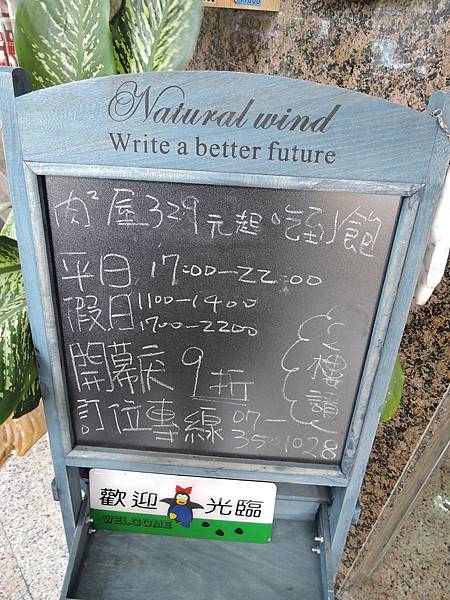 Natural wind
Write a better future
肉²屋329元起吃到飽
平日 17:00-22:00
假日 1100-1400
1700-2200
開幕庆 9折
2樓請
訂位專線 07-
3501028
歡迎光臨
WELCOME